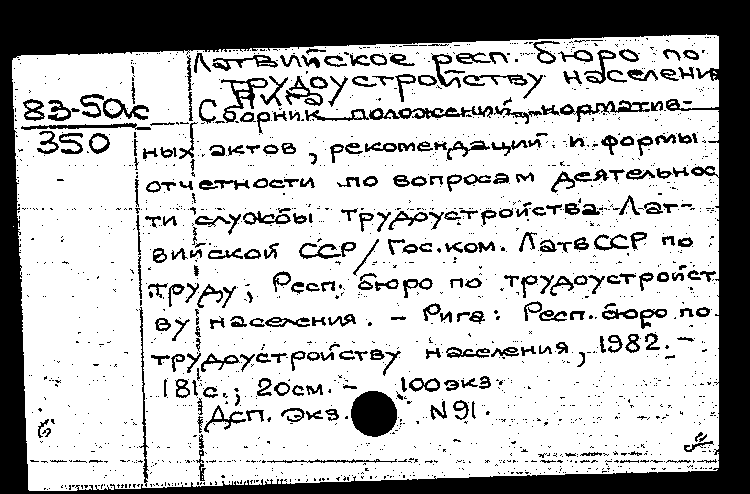 Латвийское респ. бюро по
трудоустройству населени
Рига/
83-50к
350
Сборник положений, норматив-
ных актов, рекомендаций и формы
отчетности по вопросам деятельнос
ти службы трудоустройства Лат-
вийской ССР/Гос.ком. ЛатвССР по
труду, Респ. бюро по трудоустройст
ву населения. – Рига: Респ. бюро по
трудоустройству населения, 1982. –
181с.; 20см. – 100экз.
Дсп. Экз. N 91.